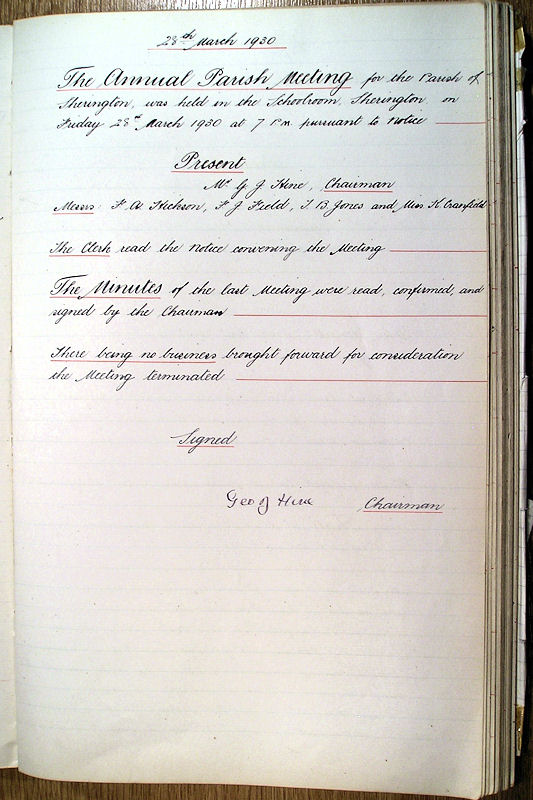 28th March 1930
The Annual Parish Meeting for the Parish of
Sherington, was held in the Schoolroom, Sherington on
Friday 28th March 1930 at 7 P.m. pursuant to Notice
Present
Mr G J Hine, Chairman
Messrs. F. A. Hickson, F J Field, J B Jones and Miss K Cranfield
The Clerk read the Notice convening the Meeting
The Minutes of the last Meeting were read, confirmed, and
signed by the Chairman
There being no business brought forward for consideration
the Meeting terminated
Signed
Geo J Hine Chairman